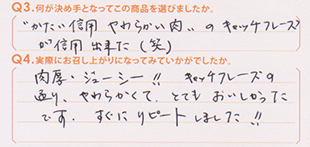 Q3.何が決め手となってこの商品を選びましたか。
"かたい信用 やわらかい肉" の キャッチフレーズ
が信用出来た(笑)
Q4.実際にお召し上がりになってみていかがでしたか。
肉厚・ジューシー!! キャッチフレーズの
通り、やわらかくて、とても おいしかった
です。すぐに リピート しました!!